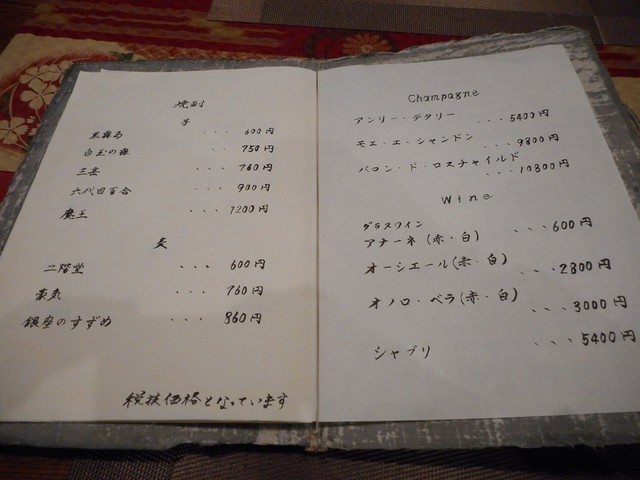 焼酎
芋
黒霧島 ... 600円
白玉の露 ... 750円
三岳 ... 760円
六代目百合 ... 900円
魔王 ... 1200円
麦
二階堂 ... 600円
豪気 ... 760円
銀座のすずめ ... 860円
税抜価格となっています
Champagne
アンリー・デタリー ... 5400円
モエ・エ・シャンドン ... 9800円
バロン・ド・ロスチャイルド ... 10800円
Wine
グラスワイン
アナーネ (赤・白) ... 600円
オーシエール (赤・白) ... 2800円
オノロ・ベラ (赤・白) ... 3000円
シャブリ ... 5400円